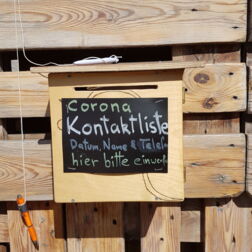 Corona
Kontaktliste
Datum, Name & Telefon
hier bitte einwerfen